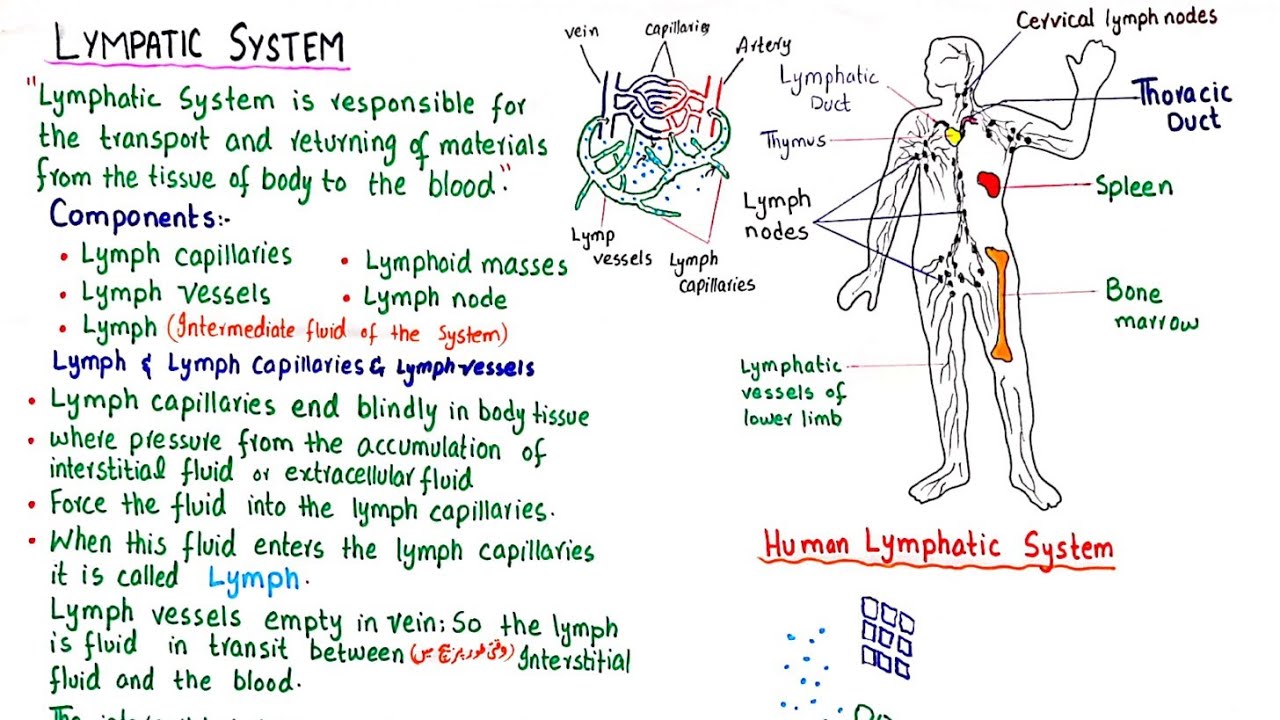 LYMPATIC SYSTEM
"Lymphatic System is responsible for
the transport and returning of materials
from the tissue of body to the blood."
Components:-
• Lymph capillaries
• Lymphoid masses
• Lymph vessels
• Lymph node
• Lymph (Intermediate fluid of the System)
Lymph & Lymph Capillaries & Lymph vessels
• Lymph capillaries end blindly in body tissue
• where pressure from the accumulation of
interstitial fluid or extracellular fluid
• Force the fluid into the lymph capillaries.
• When this fluid enters the lymph capillaries
it is called Lymph.
Lymph vessels empty in vein; So the lymph
is fluid in transit between Interstitial
fluid and the blood.
The
vein
capillaries
Artery
Lymp
vessels
Lymph
capillaries
Cervical lymph nodes
Lymphatic
Duct
Thoracic
Duct
Thymus
Spleen
Lymph
nodes
Bone
marrow
Lymphatic
vessels of
lower limb
Human Lymphatic System